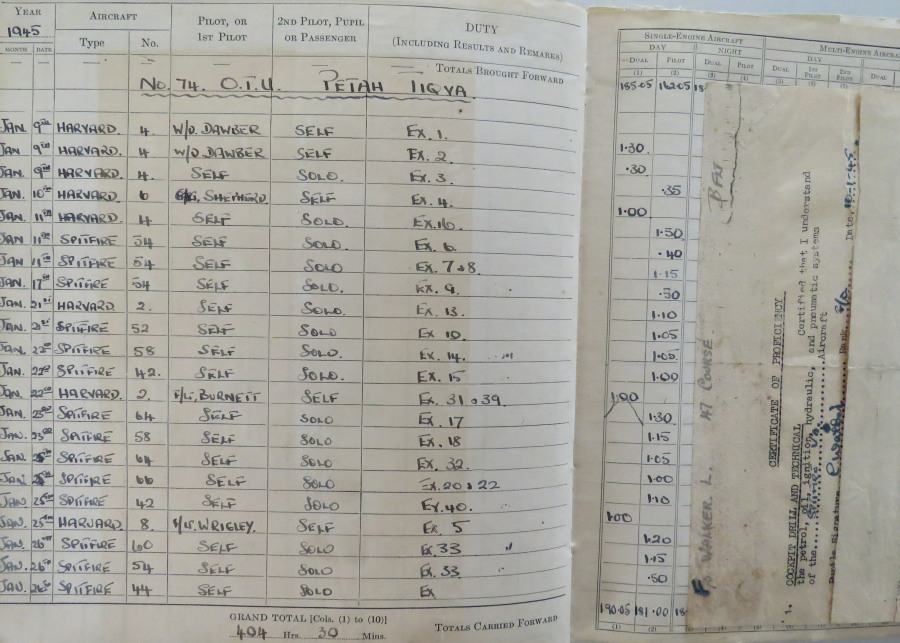 YEAR AIRCRAFT PILOT, OR 2ND PILOT, PUPIL DUTY
1945 1ST PILOT OR PASSENGER (INCLUDING RESULTS AND REMARKS)
MONTH DATE Type No.
— — — — — — — TOTALS BROUGHT FORWARD
No. 74. O.T.U. PETAH TIQVA
JAN. 9TH HARVARD. 4. W/O. DAWBER SELF Ex. 1.
JAN 9TH HARVARD. 4 W/O. DAWBER SELF Ex. 2.
JAN. 9TH HARVARD. 4. SELF SOLO. Ex. 3
JAN. 10TH HARVARD. 6 SHEPHERD. SELF Ex. 4.
JAN. 11TH HARVARD. 4 SELF SOLO. Ex.
JAN 11TH SPITFIRE 54 SELF SOLO. Ex. 6.
JAN 11TH SPITFIRE 54 SELF SOLO Ex. 7 & 8.
JAN. 17TH SPITFIRE 54 SELF SOLO. Ex. 9.
JAN. 21ST HARVARD 2. SELF SOLO. Ex. 13.
JAN. 21ST SPITFIRE 52 SELF SOLO Ex 10.
JAN. 22ND SPITFIRE 58 SELF SOLO. Ex. 14.
JAN. 22ND SPITFIRE 42. SELF SOLO. Ex. 15
JAN. 22ND HARVARD 2. F/LT. BURNETT SELF Ex. 31 & 39.
JAN. 23RD SPITFIRE 64 SELF SOLO Ex. 17
JAN. 23RD SPITFIRE 58 SELF SOLO Ex. 18
JAN. SPITFIRE 64 SELF SOLO Ex. 32.
JAN. SPITFIRE 66 SELF SOLO Ex. 20 & 22
JAN. 25TH SPITFIRE 42 SELF SOLO Ex. 40.
JAN. 25TH HARVARD. 8. F/LT. WRIGLEY. SELF Ex. 5
JAN. 26TH SPITFIRE 60 SELF SOLO Ex. 33
JAN. 26TH SPITFIRE 54 SELF SOLO Ex. 33
JAN. 26TH SPITFIRE 44 SELF SOLO Ex
GRAND TOTAL [Cols. (1) to (10)]
404 Hrs. 30 Mins. TOTALS CARRIED FORWARD
SINGLE-ENGINE AIRCRAFT MULTI-ENGINE AIRCRA
DAY NIGHT DAY
DUAL PILOT DUAL PILOT DUAL 1ST PILOT 2ND PILOT DUAL
(1) (2) (3) (4) (5) (6) (7)
185.05 162.05 18
1.30
.30
.35
1.00
1.50
.40
1.15
.50
1.10
1.05
1.05
1.00
1.00
1.30
1.15
1.05
1.00
1.10
1.00
1.20
1.15
.50
190.05 181.00 18
(1) (2)
WALKER L. COURSE
CERTIFICATE OF PROFICIENCY
1. COCKPIT DRILL AND TECHNICAL Certified that I understand
the petrol, oil, ignition, hydraulic, and pneumatic systems
of the Aircraft
Date, 10-1-45